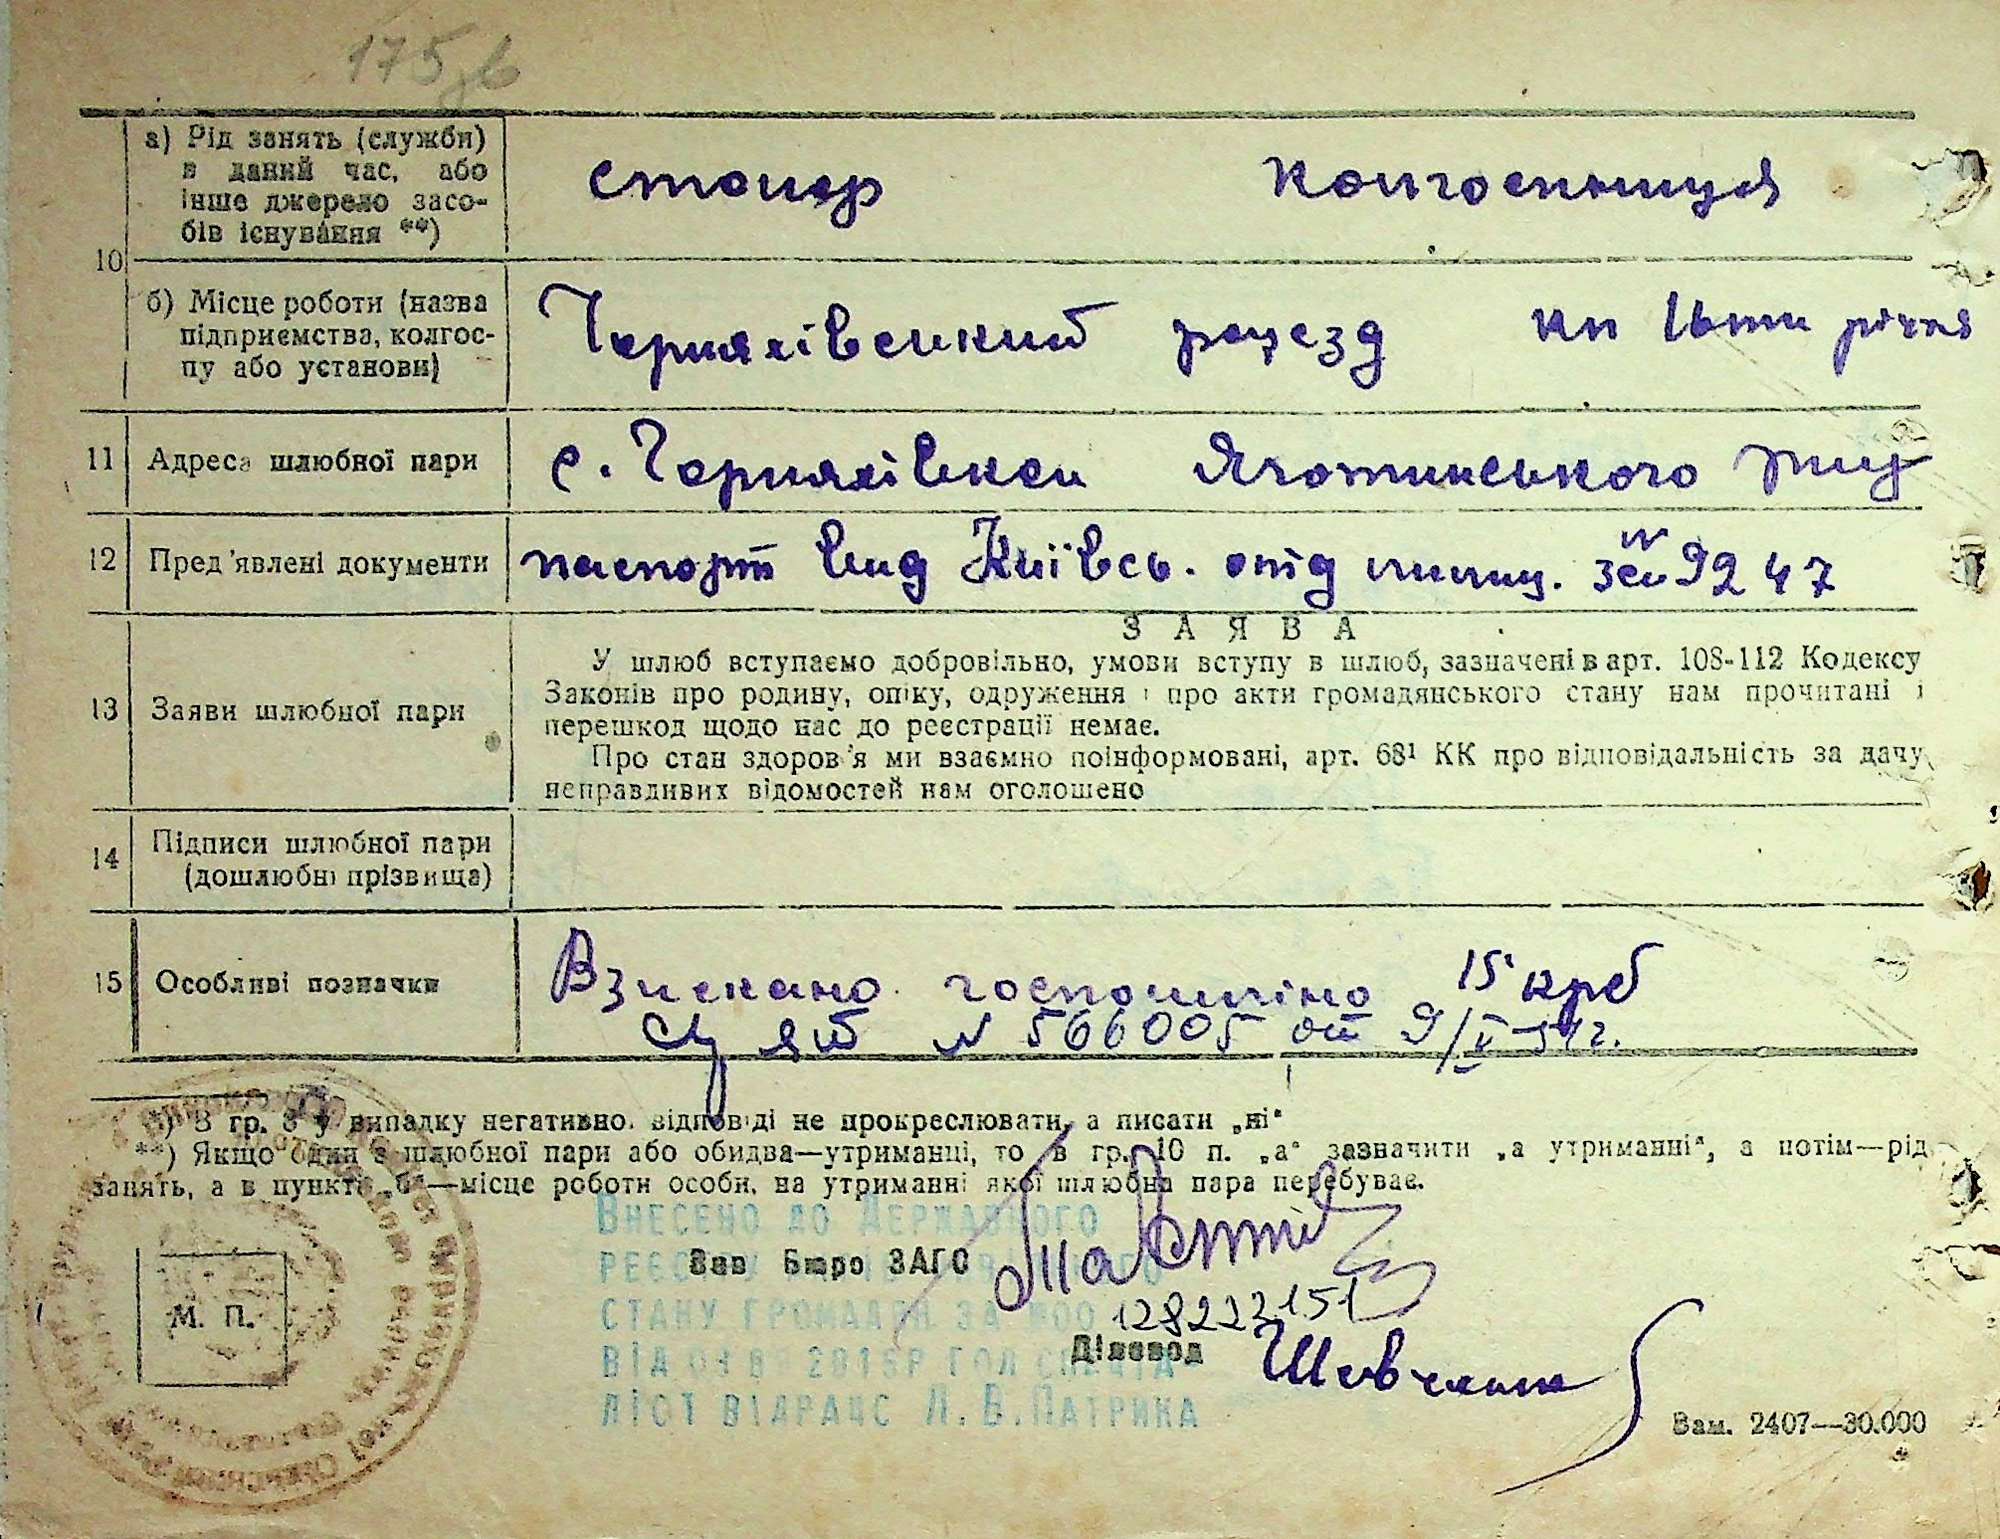 175
10
а) Рід занять (служби)
в даний час, або
інше джерело засо-
бів існування **)
столяр
колгоспниця
б) Місце роботи (назва
підприємства, колгос-
пу або установи)
Черняхівський розєзд
кп 16ти річчя
11 Адреса шлюбної пари
с. Черняхівка Яготинського р-ну
12 Пред'явлені документи
паспорт вид Київсь. отд милиц. за № 9247
13 Заяви шлюбної пари
ЗАЯВА
У шлюб вступаємо добровільно, умови вступу в шлюб, зазначені в арт. 108-112 Кодексу
Законів про родину, опіку, одруження і про акти громадянського стану нам прочитані і
перешкод щодо нас до реєстрації немає.
Про стан здоров'я ми взаємно поінформовані, арт. 68¹ КК про відповідальність за дачу
неправдивих відомостей нам оголошено
14 Підписи шлюбної пари
(дошлюбні прізвища)
15 Особливі позначки
Взискано госпошліно 15 крб
№ 566005 от 9/V-41г.
*) В гр. 8 у випадку негативно. відповіді не прокреслювати, а писати „ні“
**) Якщо один з шлюбної пари або обидва—утриманці, то в гр. 10 п. „а“ зазначити „а утриманні“, а потім—рід
занять, а в пункті „б“—місце роботи особи, на утриманні якої шлюбна пара перебуває.
Внесено до Державного
реєстру
Зав Бюро ЗАГС
М. П.
стану громадян за №00 128222151
Діловод Шевченко
від 2016р гол спеціа-
ліст відрацс Л. В. Патрика
Зам. 2407—30.000